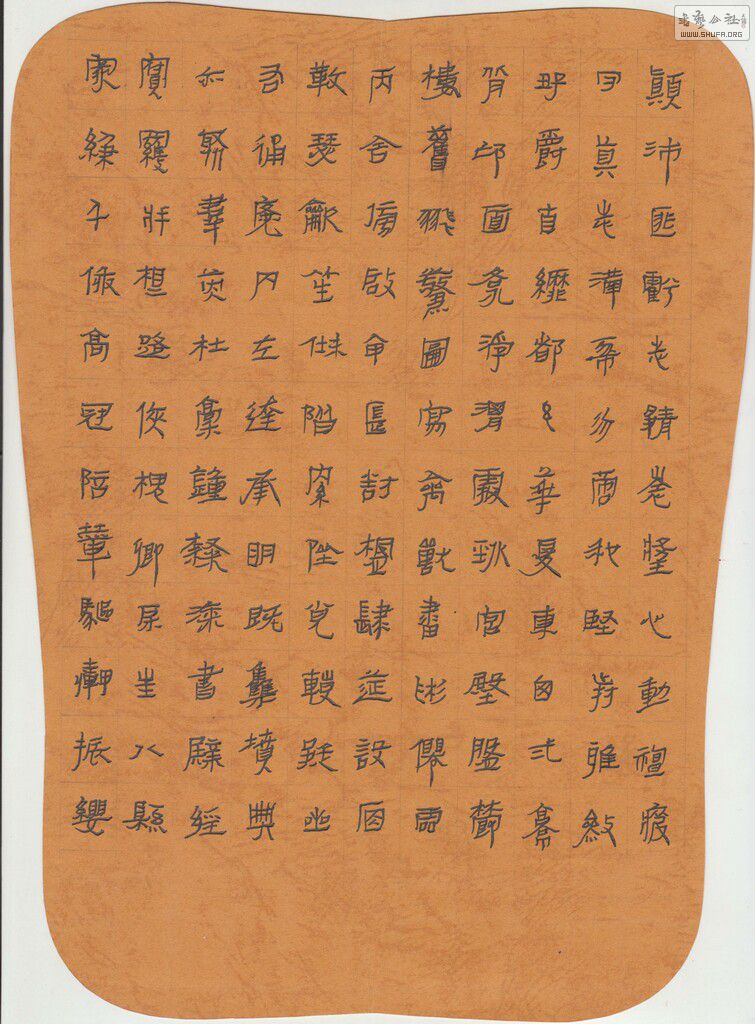 顛沛匪虧性靜情逸心動神疲
守真志滿逐物意移堅持雅操
好爵自縻都邑華夏東西二京
背邙面洛浮渭據涇宮殿盤鬱
樓觀飛驚圖寫禽獸畫彩仙靈
丙舍傍啟甲帳對楹肆筵設席
鼓瑟吹笙升階納陛弁轉疑星
右通廣內左達承明既集墳典
亦聚群英杜稿鍾隸漆書壁經
府羅將相路俠槐卿戶封八縣
家給千兵高冠陪輦驅轂振纓
书法公社
WWW.SHUFA.ORG